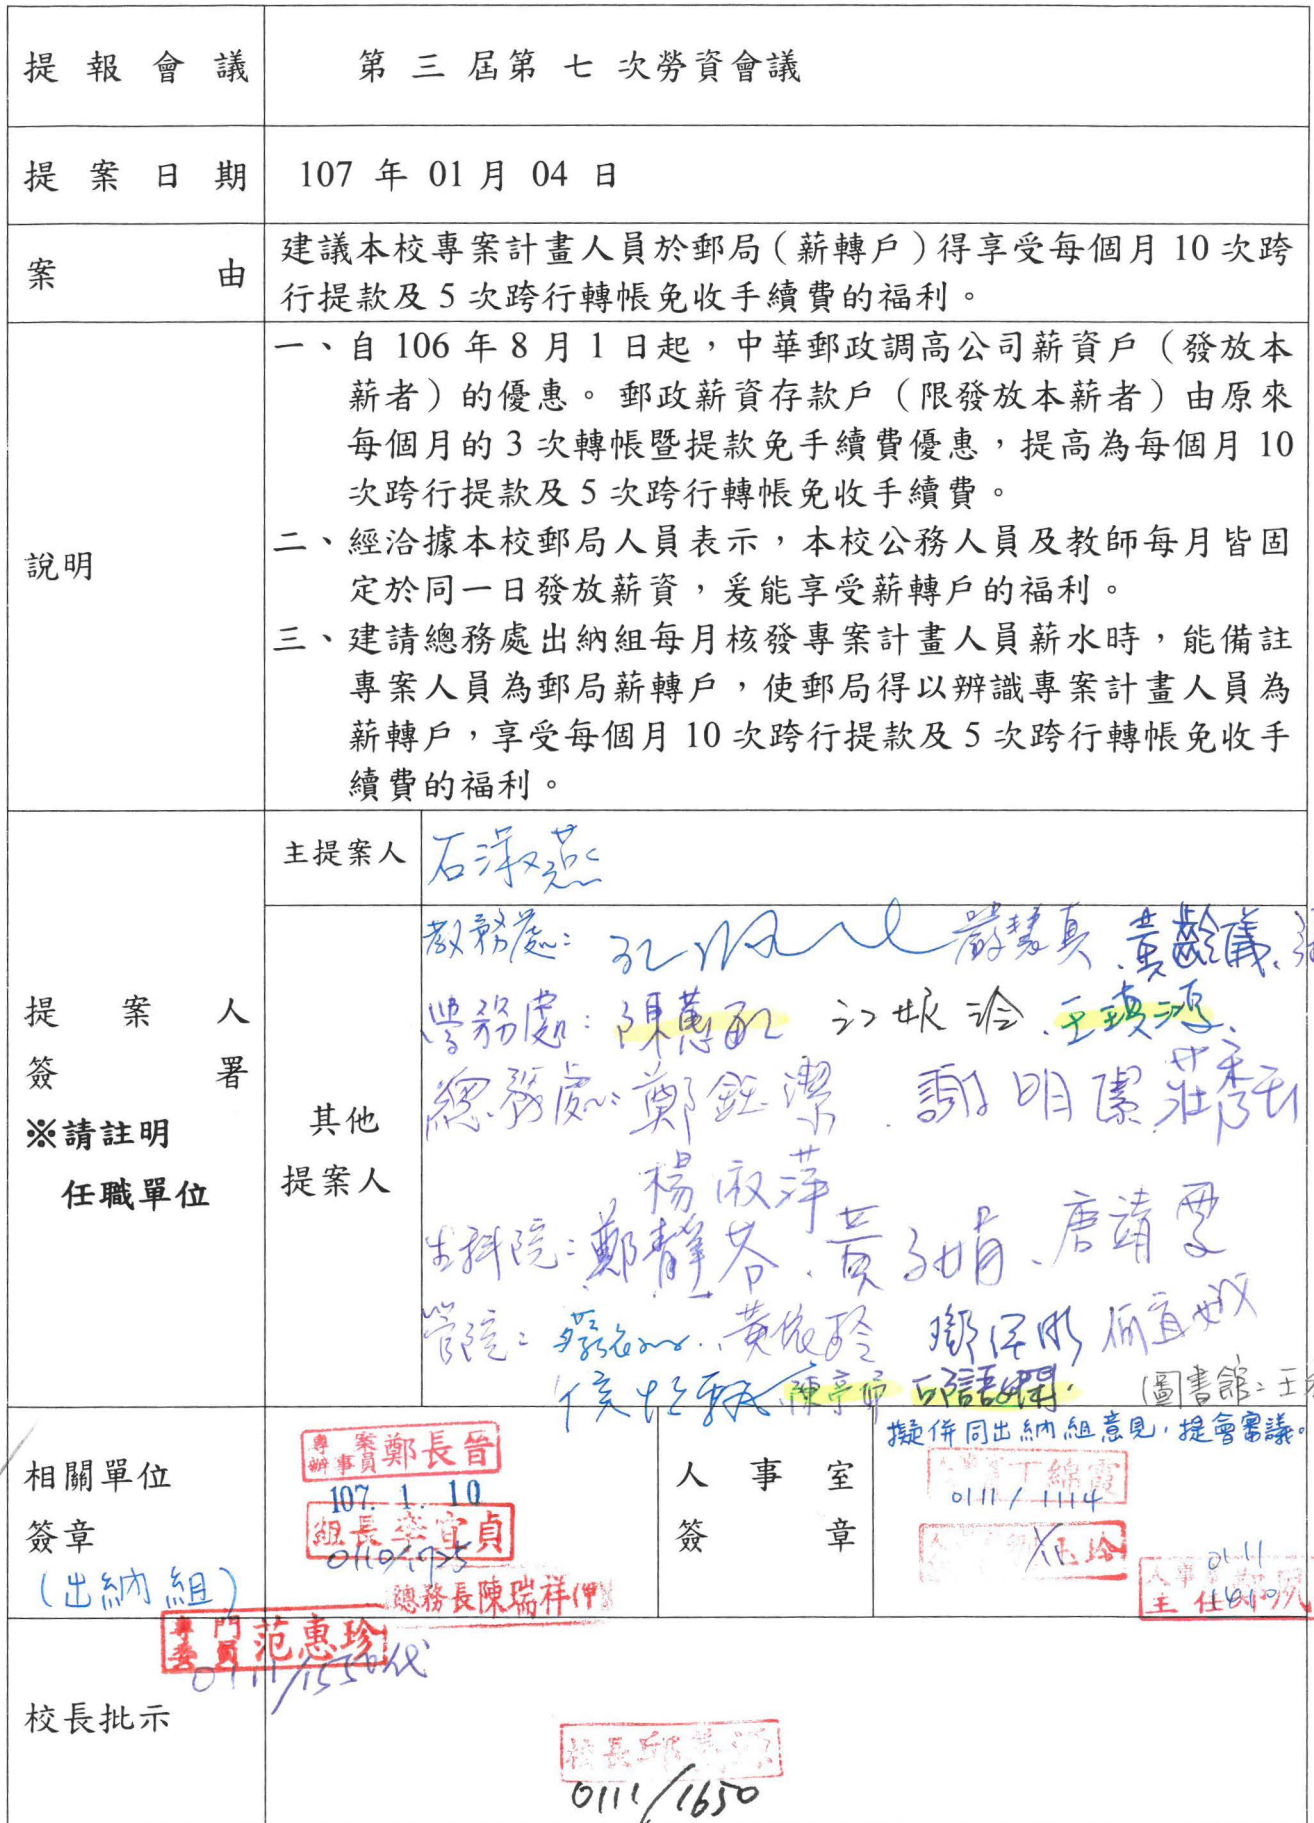 提報會議
第三屆第七次勞資會議
提案日期
107 年 01 月 04 日
案由
建議本校專案計畫人員於郵局(薪轉戶)得享受每個月 10 次跨
行提款及 5 次跨行轉帳免收手續費的福利。
說明
一、自 106 年 8 月 1 日起,中華郵政調高公司薪資戶(發放本
薪者)的優惠。郵政薪資存款戶(限發放本薪者)由原來
每個月的 3 次轉帳暨提款免手續費優惠,提高為每個月 10
次跨行提款及 5 次跨行轉帳免收手續費。
二、經洽據本校郵局人員表示,本校公務人員及教師每月皆固
定於同一日發放薪資,爰能享受薪轉戶的福利。
三、建請總務處出納組每月核發專案計畫人員薪水時,能備註
專案人員為郵局薪轉戶,使郵局得以辨識專案計畫人員為
薪轉戶,享受每個月 10 次跨行提款及 5 次跨行轉帳免收手
續費的福利。
提案人
簽署
※請註明
任職單位
主提案人
石淑燕
其他
提案人
教務處: 嚴慧真、黃齡儀、
學務處:陳蕙 江 王瑱
總務處:鄭鈺潔、謝明 莊
楊淑萍
生科院:鄭靜芬、黃子娟、唐靖雯
管院: 黃 何宜
侯 陳亭 邱語 (圖書館:王
相關單位
簽章
(出納組)
專案
辦事員 鄭長晉
107. 1. 10
組長李宜貞
0110/1725
總務長陳瑞祥(甲)
專門
委員 范惠珍
0111/1550代
人事室
簽章
擬併同出納組意見,提會審議。
丁綿霞
0111/1114
玉玲
0111
1410
人事
主任
校長批示
校長邱
0111/1650